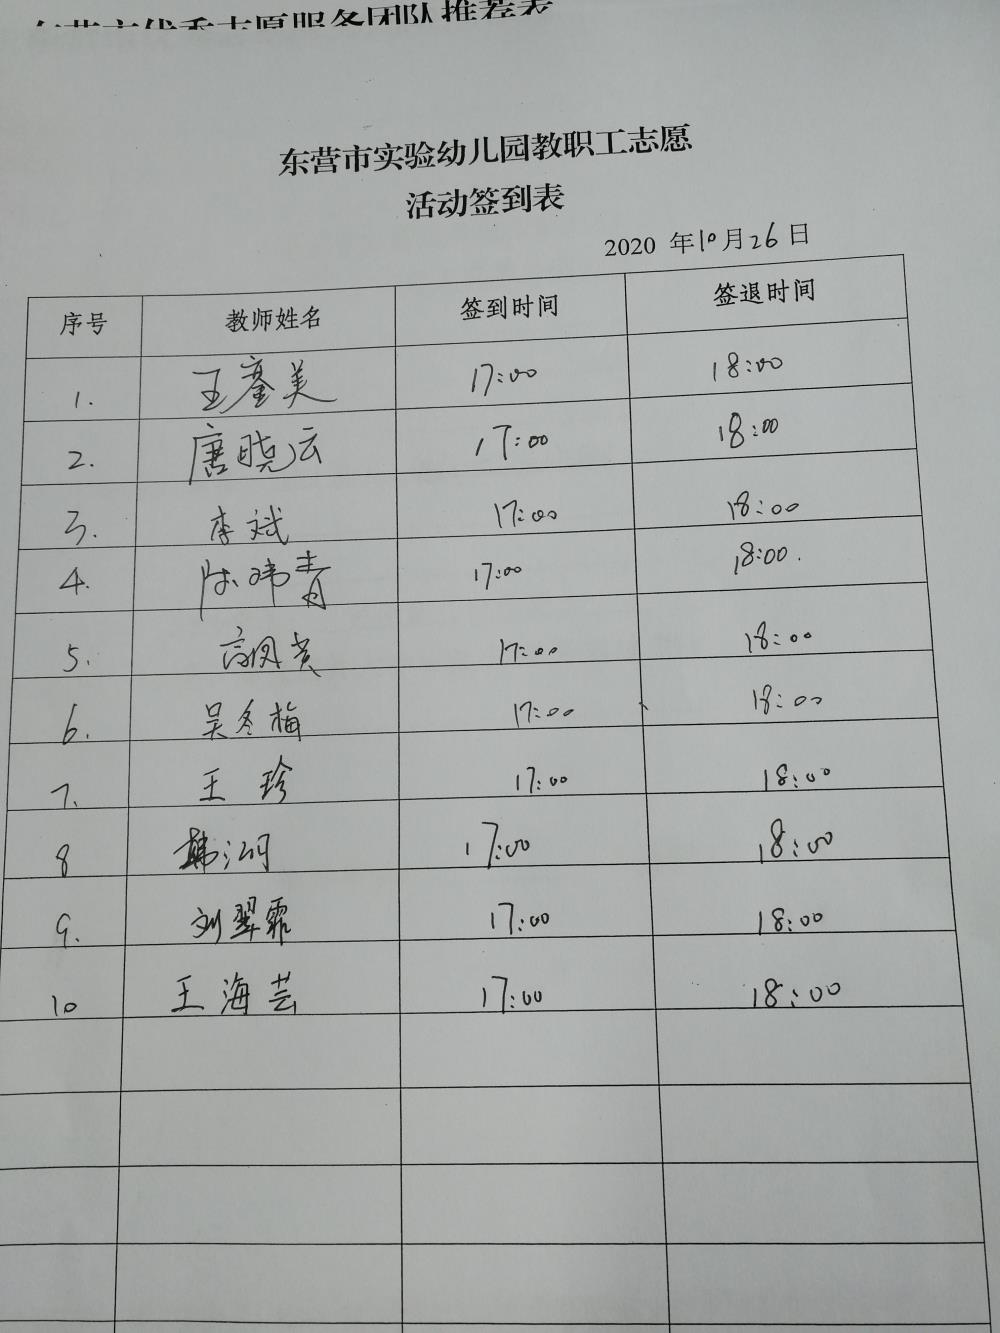 东营市优秀志愿服务团队推荐表
东营市实验幼儿园教职工志愿
活动签到表
2020 年10月26日
序号 教师姓名 签到时间 签退时间
1. 王銮美 17:00 18:00
2. 唐晓云 17:00 18:00
3. 李斌 17:00 18:00
4. 陈玮青 17:00 18:00.
5. 高凤英 17:00 18:00
6. 吴冬梅 17:00 18:00
7. 王珍 17:00 18:00
8 韩 17:00 18:00
9. 刘翠霏 17:00 18:00
10 王海芸 17:00 18:00